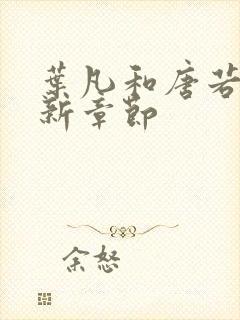 葉凡和唐若
新章節
余怒